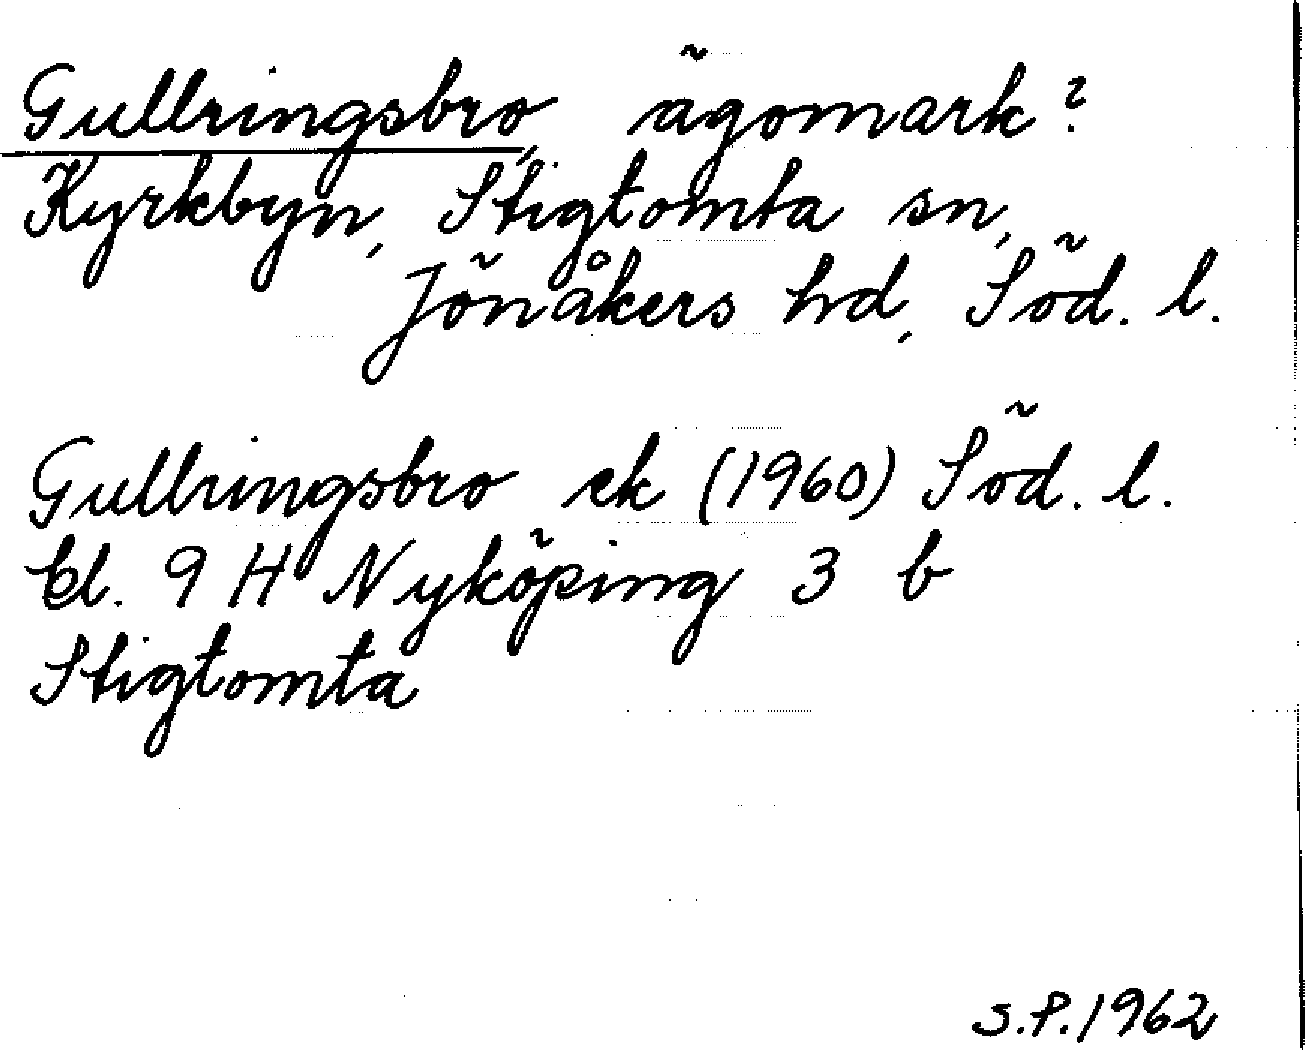 Gullringsbro, ägomark?
Kyrkbyn, Stigtomta sn,
Jönåkers hd, Söd. l.
Gullringsbro ek (1960) Söd. l.
kl. 9 H Nyköping 3 b
Stigtomta
S.P. 1962